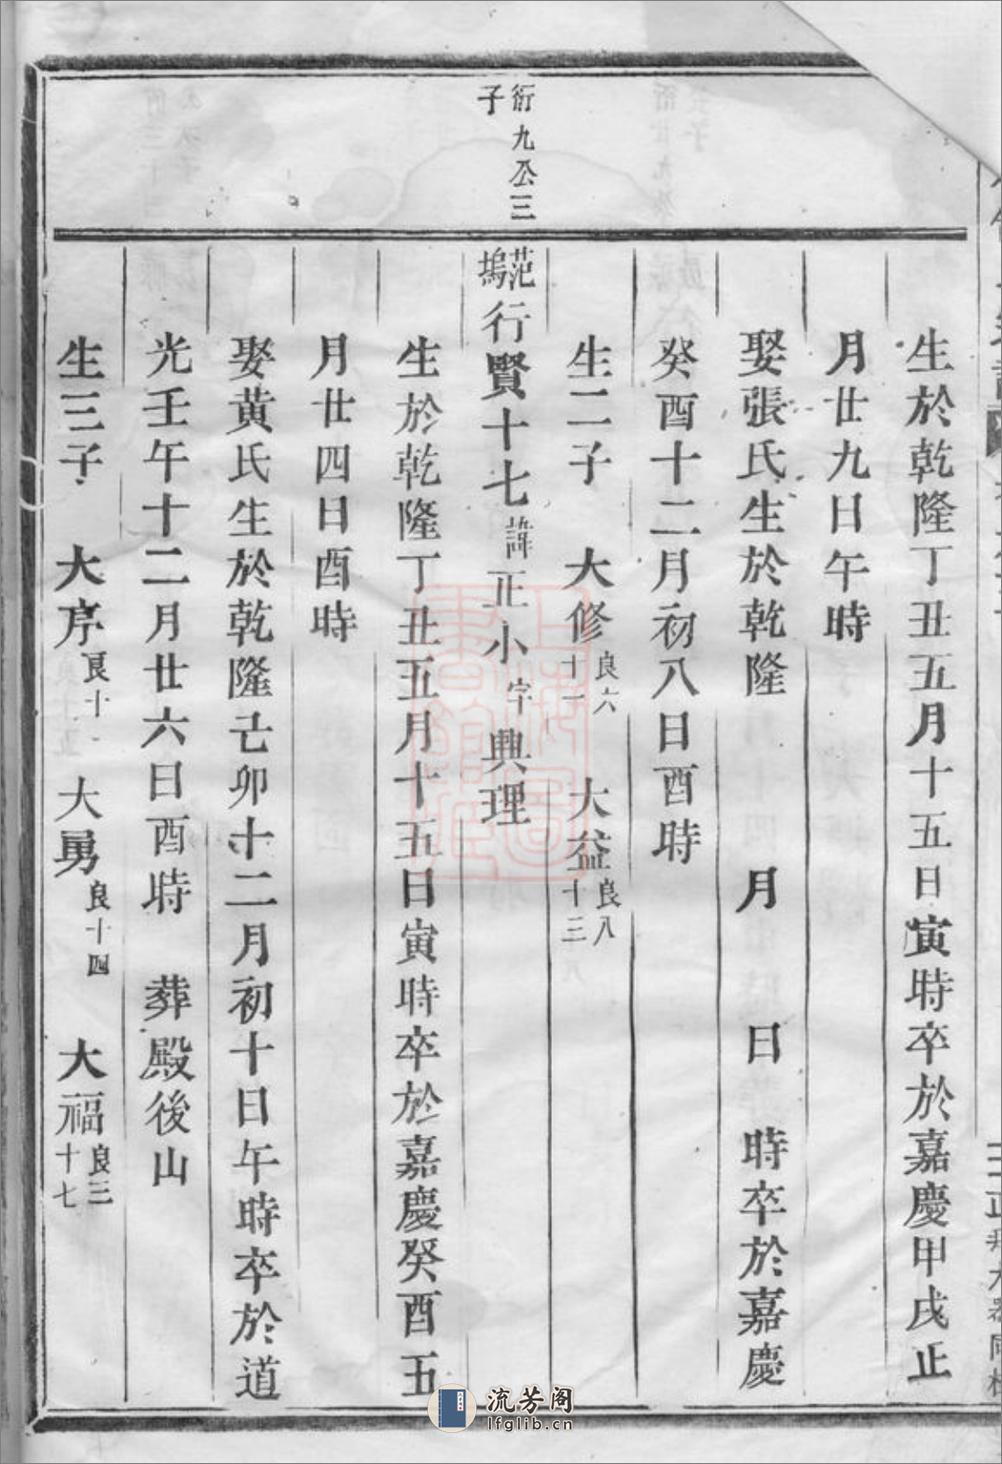 生於乾隆丁丑五月十五日寅時卒於嘉慶甲戌正
月廿九日午時
娶張氏生於乾隆 月 日 時卒於嘉慶
癸酉十二月初八日酉時
生二子 大修良六十一 大益良八十三
衍九公三子
范塢行賢十七諱正小字典理
生於乾隆丁丑五月十五日寅時卒於嘉慶癸酉五
月廿四日酉時
娶黄氏生於乾隆己卯十二月初十日午時卒於道
光壬午十二月廿六日酉時 葬殿後山
生三子 大序良十一 大勇良十四 大福良三十七
流芳阁
lfglib.cn